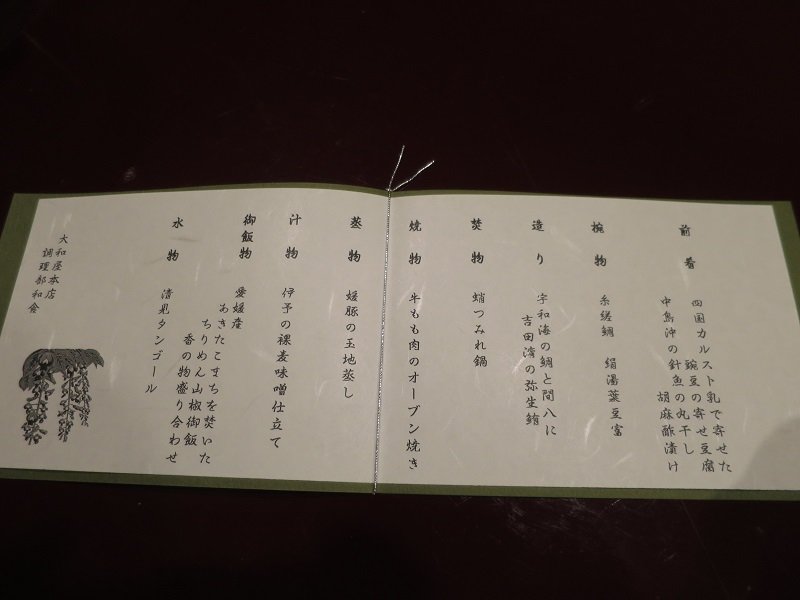 前肴
四国カルスト乳で寄せた
豌豆の寄せ豆腐
中島沖の針魚の丸干し
胡麻酢漬け
椀物
糸縒鯛 絹湯葉豆富
造り
宇和海の鯛と間八に
吉田湾の弥生鮪
焚物
蛸つみれ鍋
焼物
牛もも肉のオーブン焼き
蒸物
媛豚の玉地蒸し
汁物
伊予の裸麦味噌仕立て
御飯物
愛媛産
あきたこまちを焚いた
ちりめん山椒御飯
香の物盛り合わせ
水物
清見タンゴール
大和屋本店
調理部和食